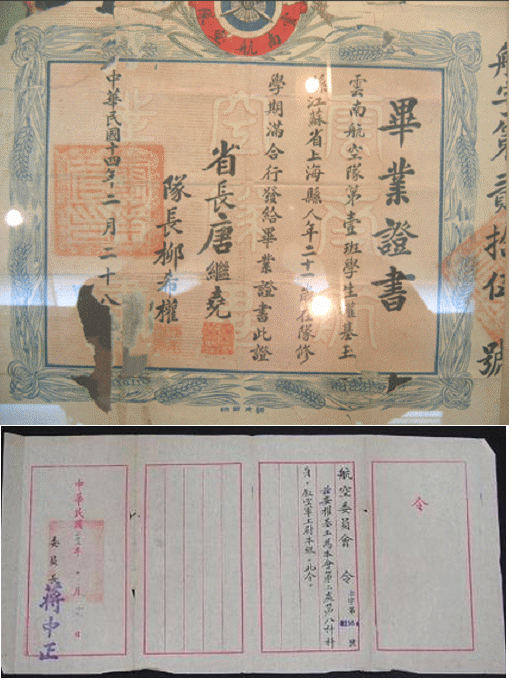 畢業證書
雲南航空隊第壹班學生權基玉
係江蘇省上海縣人年二十一歲在隊修
學期滿合行發給畢業證書此證
省長唐繼堯
隊長柳希權
中華民國十四年二月二十八
航字第貳拾伍號
令
航空委員會 令
茲委權基玉為本會第二處第八科科
員。叙空軍上尉本級。此令。
中華民國 年 月 日
委員長 蔣中正